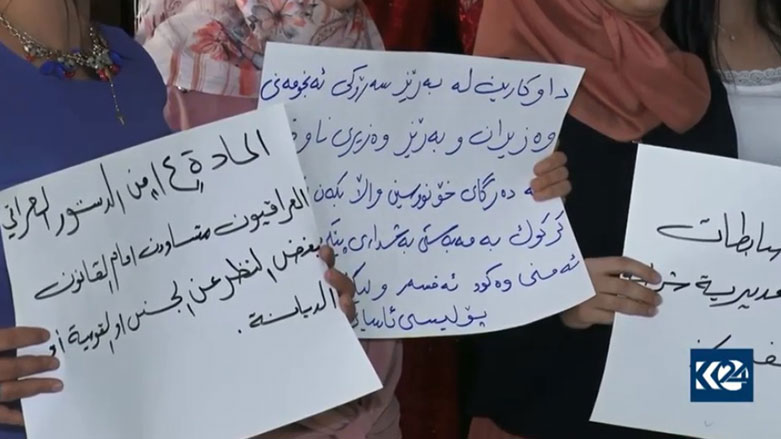 المادة ١٤ من الدستور العراقي
العراقيون متساوون امام القانون
بغض النظر عن الجنس او القومية او
الديانة.
داوكارین لە بەڕێز سەرۆکی ئەنجومەنی
وەزیران و بەڕێز وەزیری
دەرگای خۆنووسین واڵا بکەن
کرکوک بە مەبەستی بەشداری
ئەمنی وەکوو ئەفسەر و
پۆلیسی
ضابطات
مديرية
K24